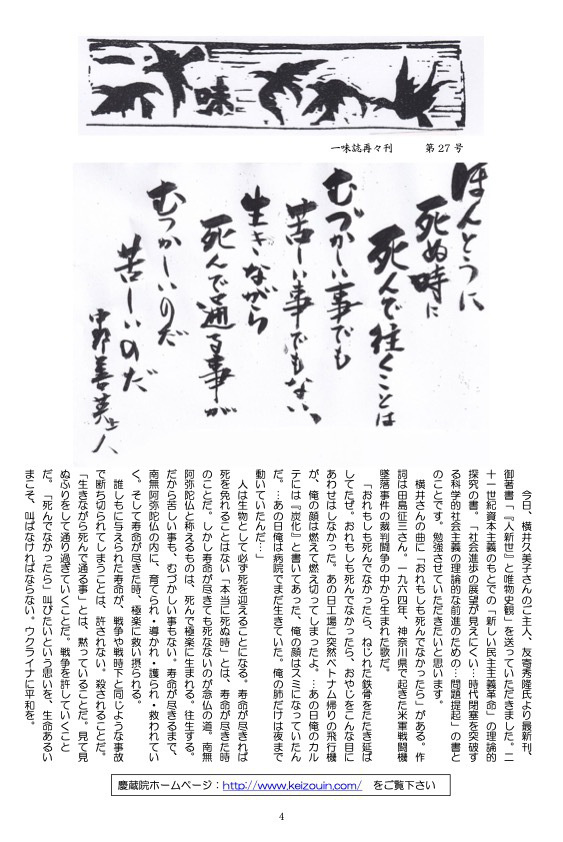 一味
一味誌再々刊　第27号
ほんとうに
死ぬ時に
死んで往くことは
むづかしい事でも
苦しい事でもない、
生きながら
死んで通る事が
むつかしいのだ
苦しいのだ
中野善英上人
今日、横井久美子さんのご主人、友寄秀隆氏より最新刊、
御著書「『人新世』と唯物史観」を送っていただきました。二
十一世紀資本主義のもとでの「新しい民主主義革命」の理論的
探究の書。「社会進歩の展望が見えにくい…時代閉塞を突破す
る科学的社会主義の理論的な前進のための…問題提起」の書と
のことです。勉強させていただきたいと思います。
横井さんの曲に「おれもしも死んでなかったら」がある。作
詞は田島征三さん。一九六四年、神奈川県で起きた米軍戦闘機
墜落事件の裁判闘争の中から生まれた歌だ。
「おれもしも死んでなかったら、ねじれた鉄骨をたたき延ば
してたぜ。おれもしも死んでなかったら、おやじをこんな目に
あわせはしなかった。あの日工場に突然ベトナム帰りの飛行機
が、俺の顔は燃えて燃え切ってしまったよ。…あの日俺のカル
テには『炭化』と書いてあった、俺の顔はスミになっていたん
だ。…あの日俺は病院でまだ生きていた。俺の肺だけは夜まで
動いていたんだ…」
人は生物として必ず死を迎えることになる。寿命が尽きれば
死を免れることはない「本当に死ぬ時」とは、寿命が尽きた時
のことだ。しかし寿命が尽きても死なないのが念仏の道。南無
阿弥陀仏と称えるものは、死んで極楽に生まれる。往生する。
だから苦しい事も、むづかしい事もない。寿命が尽きるまで、
南無阿弥陀仏の内に、育てられ・導かれ・護られ・救われてい
く。そして寿命が尽きた時、極楽に救い摂られる。
誰しもに与えられた寿命が、戦争や戦時下と同じような事故
で断ち切られてしまうことは、許されない。殺されることだ。
「生きながら死んで通る事」とは、黙っていることだ。見て見
ぬふりをして通り過ぎていくことだ。戦争を許していくこと
だ。「死んでなかったら」叫びたいという思いを、生命あるい
まこそ、叫ばなければならない。ウクライナに平和を。
慶蔵院ホームページ：http://www.keizouin.com/　をご覧下さい
4